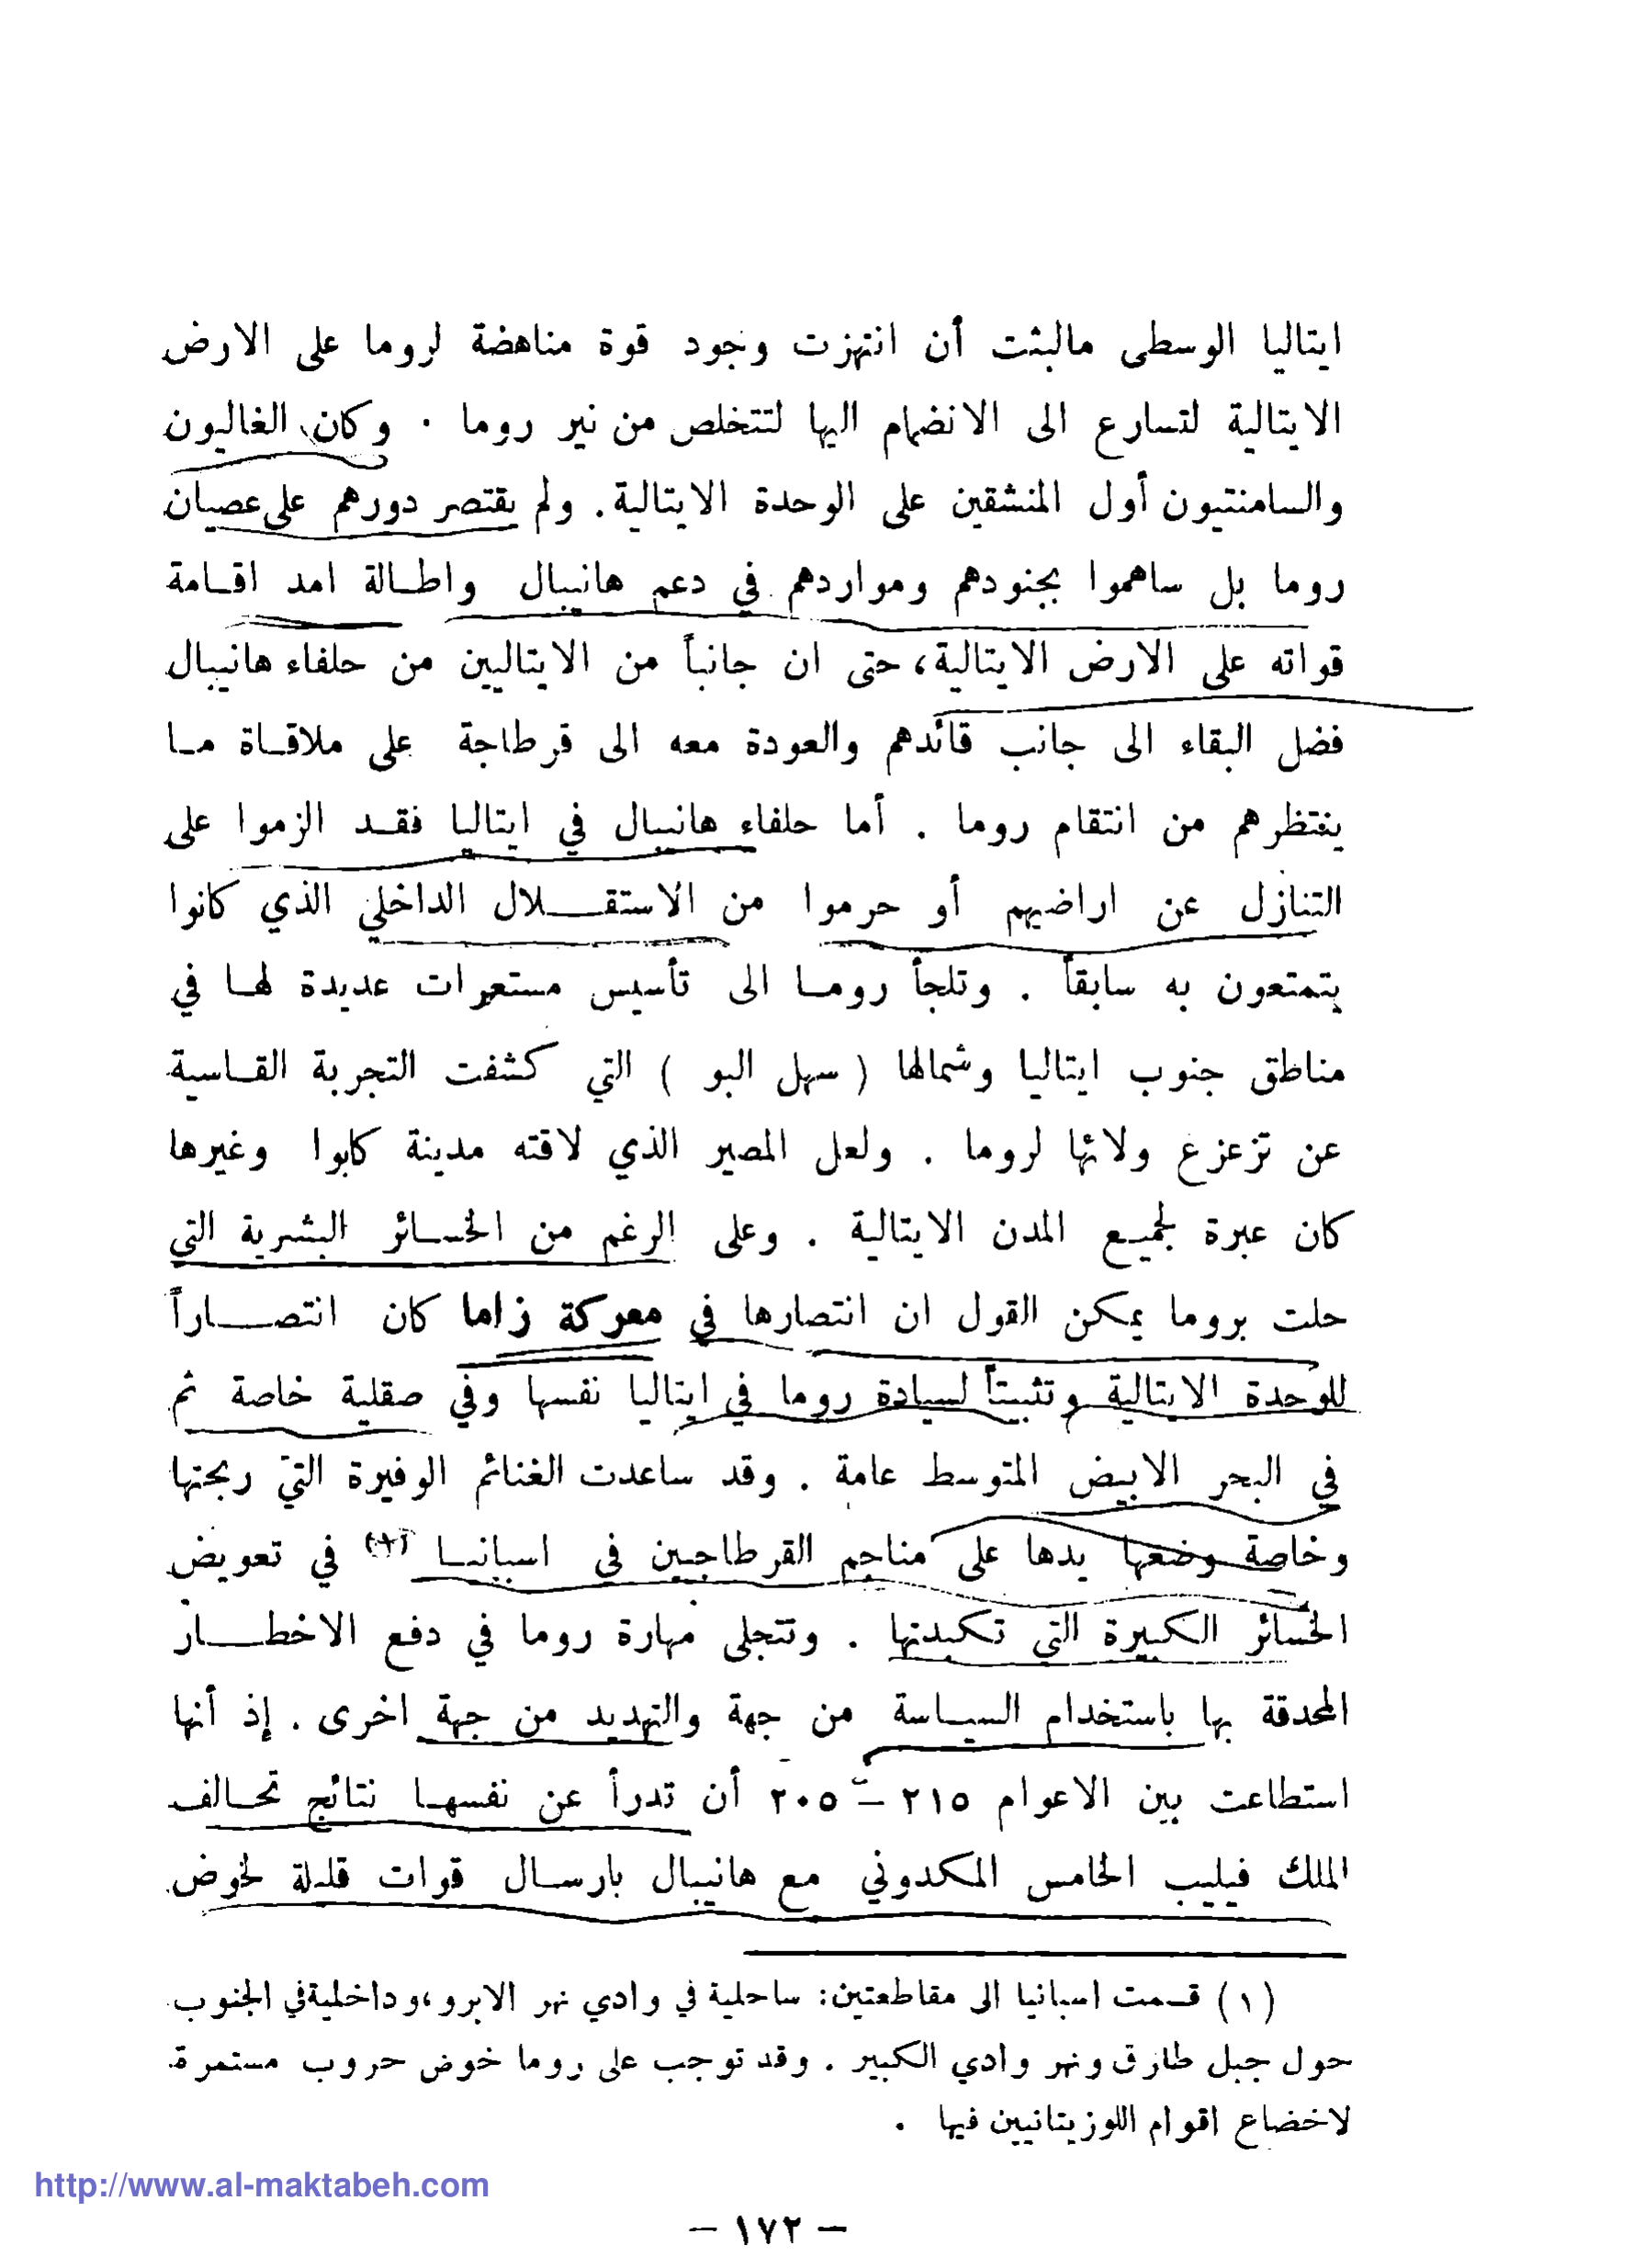 ايتاليا الوسطى مالبثت أن انتهزت وجود قوة مناهضة لروما على الارض
الايتالية لتسارع الى الانضمام اليها لتتخلص من نير روما . وكان الغاليون
والسامنتيون أول المنشقين على الوحدة الايتالية. ولم يقتصر دورهم على عصيان
روما بل ساهموا بجنودهم ومواردهم في دعم هانيبال واطالة امد اقامة
قواته على الارض الايتالية، حتى ان جانباً من الايتاليين من حلفاء هانيبال
فضل البقاء الى جانب قائدهم والعودة معه الى قرطاجة على ملاقاة ما
ينتظرهم من انتقام روما . أما حلفاء هانيبال في ايتاليا فقد الزموا على
التنازل عن اراضيهم أو حرموا من الاستقلال الداخلي الذي كانوا
يتمتعون به سابقاً . وتلجأ روما الى تأسيس مستعمرات عديدة لها في
مناطق جنوب ايتاليا وشمالها ( سهل البو ) التي كشفت التجربة القاسية
عن تزعزع ولائها لروما . ولعل المصير الذي لاقته مدينة كابوا وغيرها
كان عبرة لجميع المدن الايتالية . وعلى الرغم من الخسائر البشرية التي
حلت بروما يمكن القول ان انتصارها في معركة زاما كان انتصاراً
للوحدة الايتالية وتثبيتاً لسيادة روما في ايتاليا نفسها وفي صقلية خاصة ثم
في البحر الابيض المتوسط عامة . وقد ساعدت الغنائم الوفيرة التي ربحتها
وخاصة وضعها يدها على مناجم القرطاجيين في اسبانيا (١) في تعويض
الخسائر الكبيرة التي تكبدتها . وتتجلى مهارة روما في دفع الاخطار
المحدقة بها باستخدام السياسة من جهة والتهديد من جهة اخرى . إذ أنها
استطاعت بين الاعوام ٢١٥ – ٢٠٥ أن تدرأ عن نفسها نتائج تحالف
الملك فيليب الخامس المكدوني مع هانيبال بارسال قوات قليلة لخوض
(١) قسمت اسبانيا الى مقاطعتين: ساحلية في وادي نهر الابرو، وداخلية في الجنوب
حول جبل طارق ونهر وادي الكبير . وقد توجب على روما خوض حروب مستمرة
لاخضاع اقوام اللوزيتانيين فيها .
http://www.al-maktabeh.com
– ١٧٢ –